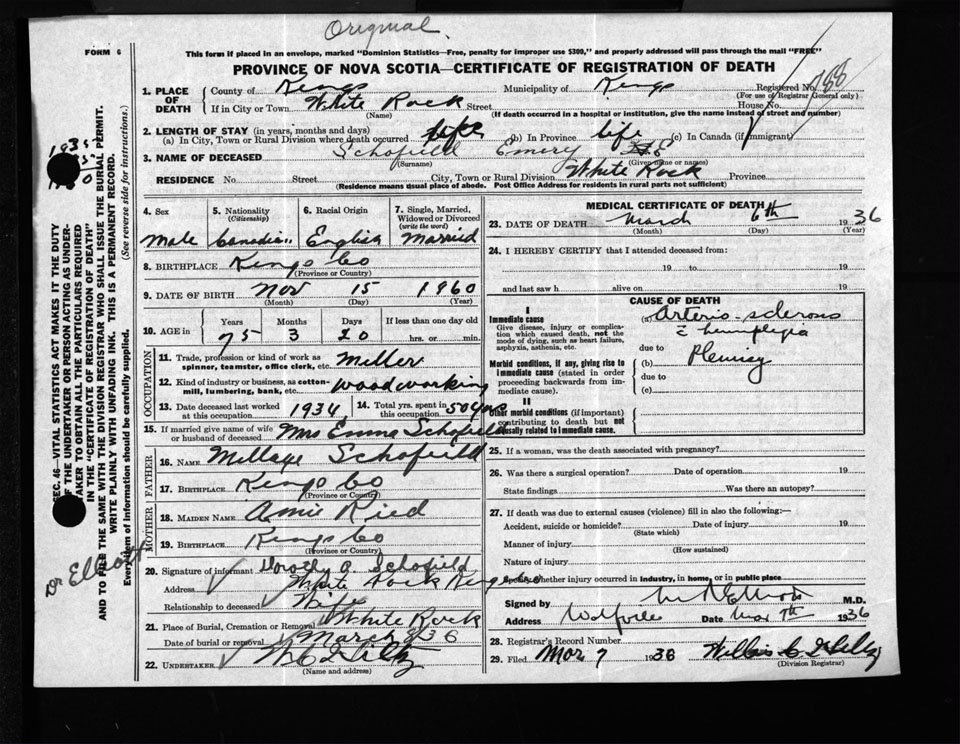 Original.
FORM 6
This form if placed in an envelope, marked "Dominion Statistics—Free, penalty for improper use $300," and properly addressed will pass through the mail "FREE"
PROVINCE OF NOVA SCOTIA—CERTIFICATE OF REGISTRATION OF DEATH
1. PLACE OF DEATH
County of Kings Municipality of Kings Registered No. 788
(For use of Registrar General only)
If in City or Town White Rock Street House No.
(Name) (If death occurred in a hospital or institution, give the name instead of street and number)
2. LENGTH OF STAY (in years, months and days)
(a) In City, Town or Rural Division where death occurred life (b) In Province life (c) In Canada (if immigrant)
3. NAME OF DECEASED Schofield Emery E
(Surname) (Given name or names)
RESIDENCE No. Street City, Town or Rural Division White Rock Province
(Residence means usual place of abode. Post Office Address for residents in rural parts not sufficient)
4. Sex Male
5. Nationality (Citizenship) Canadian
6. Racial Origin English
7. Single, Married, Widowed or Divorced (write the word) Married
8. BIRTHPLACE Kings Co
(Province or Country)
9. DATE OF BIRTH Nov 15 1960
(Month) (Day) (Year)
10. AGE in Years Months Days If less than one day old
75 3 20 hrs. or min.
OCCUPATION
11. Trade, profession or kind of work as spinner, teamster, office clerk, etc. Miller
12. Kind of industry or business, as cotton-mill, lumbering, bank, etc. Woodworking
13. Date deceased last worked at this occupation 1934
14. Total yrs. spent in this occupation 50 yrs
15. If married give name of wife or husband of deceased Mrs Emma Schofield
FATHER
16. NAME Millage Schofield
17. BIRTHPLACE Kings Co
(Province or Country)
MOTHER
18. MAIDEN NAME Amie Ried
19. BIRTHPLACE Kings Co
(Province or Country)
20. Signature of informant Dorothy A. Schofield
Address White Rock Kings Co
Relationship to deceased Wife
21. Place of Burial, Cremation or Removal White Rock
Date of burial or removal March 8 36
22. UNDERTAKER
(Name and address)
MEDICAL CERTIFICATE OF DEATH
23. DATE OF DEATH March 6th 1936
(Month) (Day) (Year)
24. I HEREBY CERTIFY that I attended deceased from:
19 to 19
and last saw h alive on 19
CAUSE OF DEATH
I
Immediate cause
Give disease, injury or complication which caused death, not the mode of dying, such as heart failure, asphyxia, asthenia, etc.
(a) Arterio-sclerosis
c̄ hemiplegia
due to Pleurisy
Morbid conditions, if any, giving rise to immediate cause (stated in order proceeding backwards from immediate cause).
(b)
due to
(c)
II
Other morbid conditions (if important) contributing to death but not causally related to immediate cause.
25. If a woman, was the death associated with pregnancy?
26. Was there a surgical operation? Date of operation 19
State findings Was there an autopsy?
27. If death was due to external causes (violence) fill in also the following:—
Accident, suicide or homicide? Date of injury 19
(State which)
Manner of injury
(How sustained)
Nature of injury
Specify whether injury occurred in industry, in home, or in public place
Signed by M.D.
Address Wolfville Date Mar 7th 1936
28. Registrar's Record Number
29. Filed Mar 7 1936
(Division Registrar)
SEC. 46—VITAL STATISTICS ACT MAKES IT THE DUTY
OF THE UNDERTAKER OR PERSON ACTING AS UNDER-
TAKER TO OBTAIN ALL THE PARTICULARS REQUIRED
IN THE "CERTIFICATE OF REGISTRATION OF DEATH"
AND TO FILE THE SAME WITH THE DIVISION REGISTRAR WHO SHALL ISSUE THE BURIAL PERMIT.
WRITE PLAINLY WITH UNFADING INK. THIS IS A PERMANENT RECORD.
Every item of information should be carefully supplied. (See reverse side for instructions.)
Dr Elliott